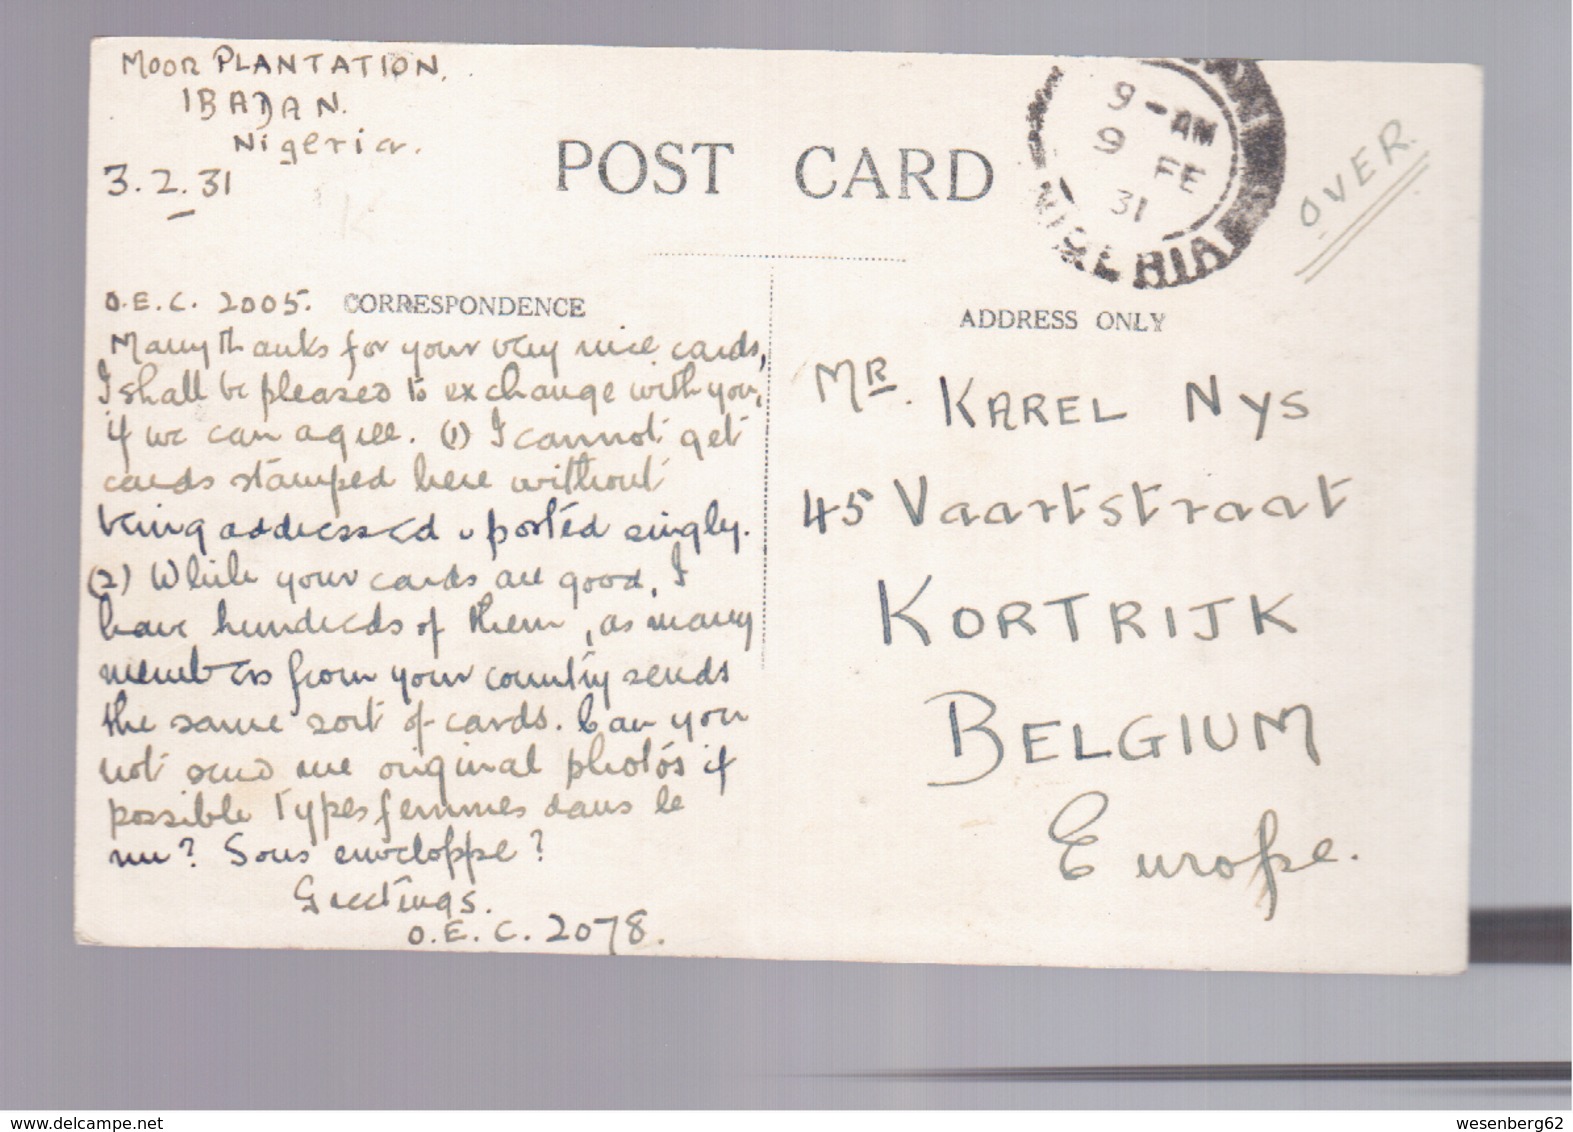 MOOR PLANTATION.
IBADAN.
Nigeria.
3.2.31
POST CARD
9-AM
9 FE
31
NIGERIA
OVER.
O.E.C. 2005. CORRESPONDENCE
Many thanks for your very nice cards,
I shall be pleased to exchange with you,
if we can agree. (1) I cannot get
cards stamped here without
being addressed & posted singly.
(2) While your cards are good, I
have hundreds of them, as many
members from your country sends
the same sort of cards. Can you
not send me original photos if
possible Types femmes dans le
nu? Sous enveloppe?
Greetings.
O.E.C. 2078.
ADDRESS ONLY
MR. KAREL NYS
45 Vaartstraat
KORTRIJK
BELGIUM
Europe.
www.delcampe.net
wesenberg62